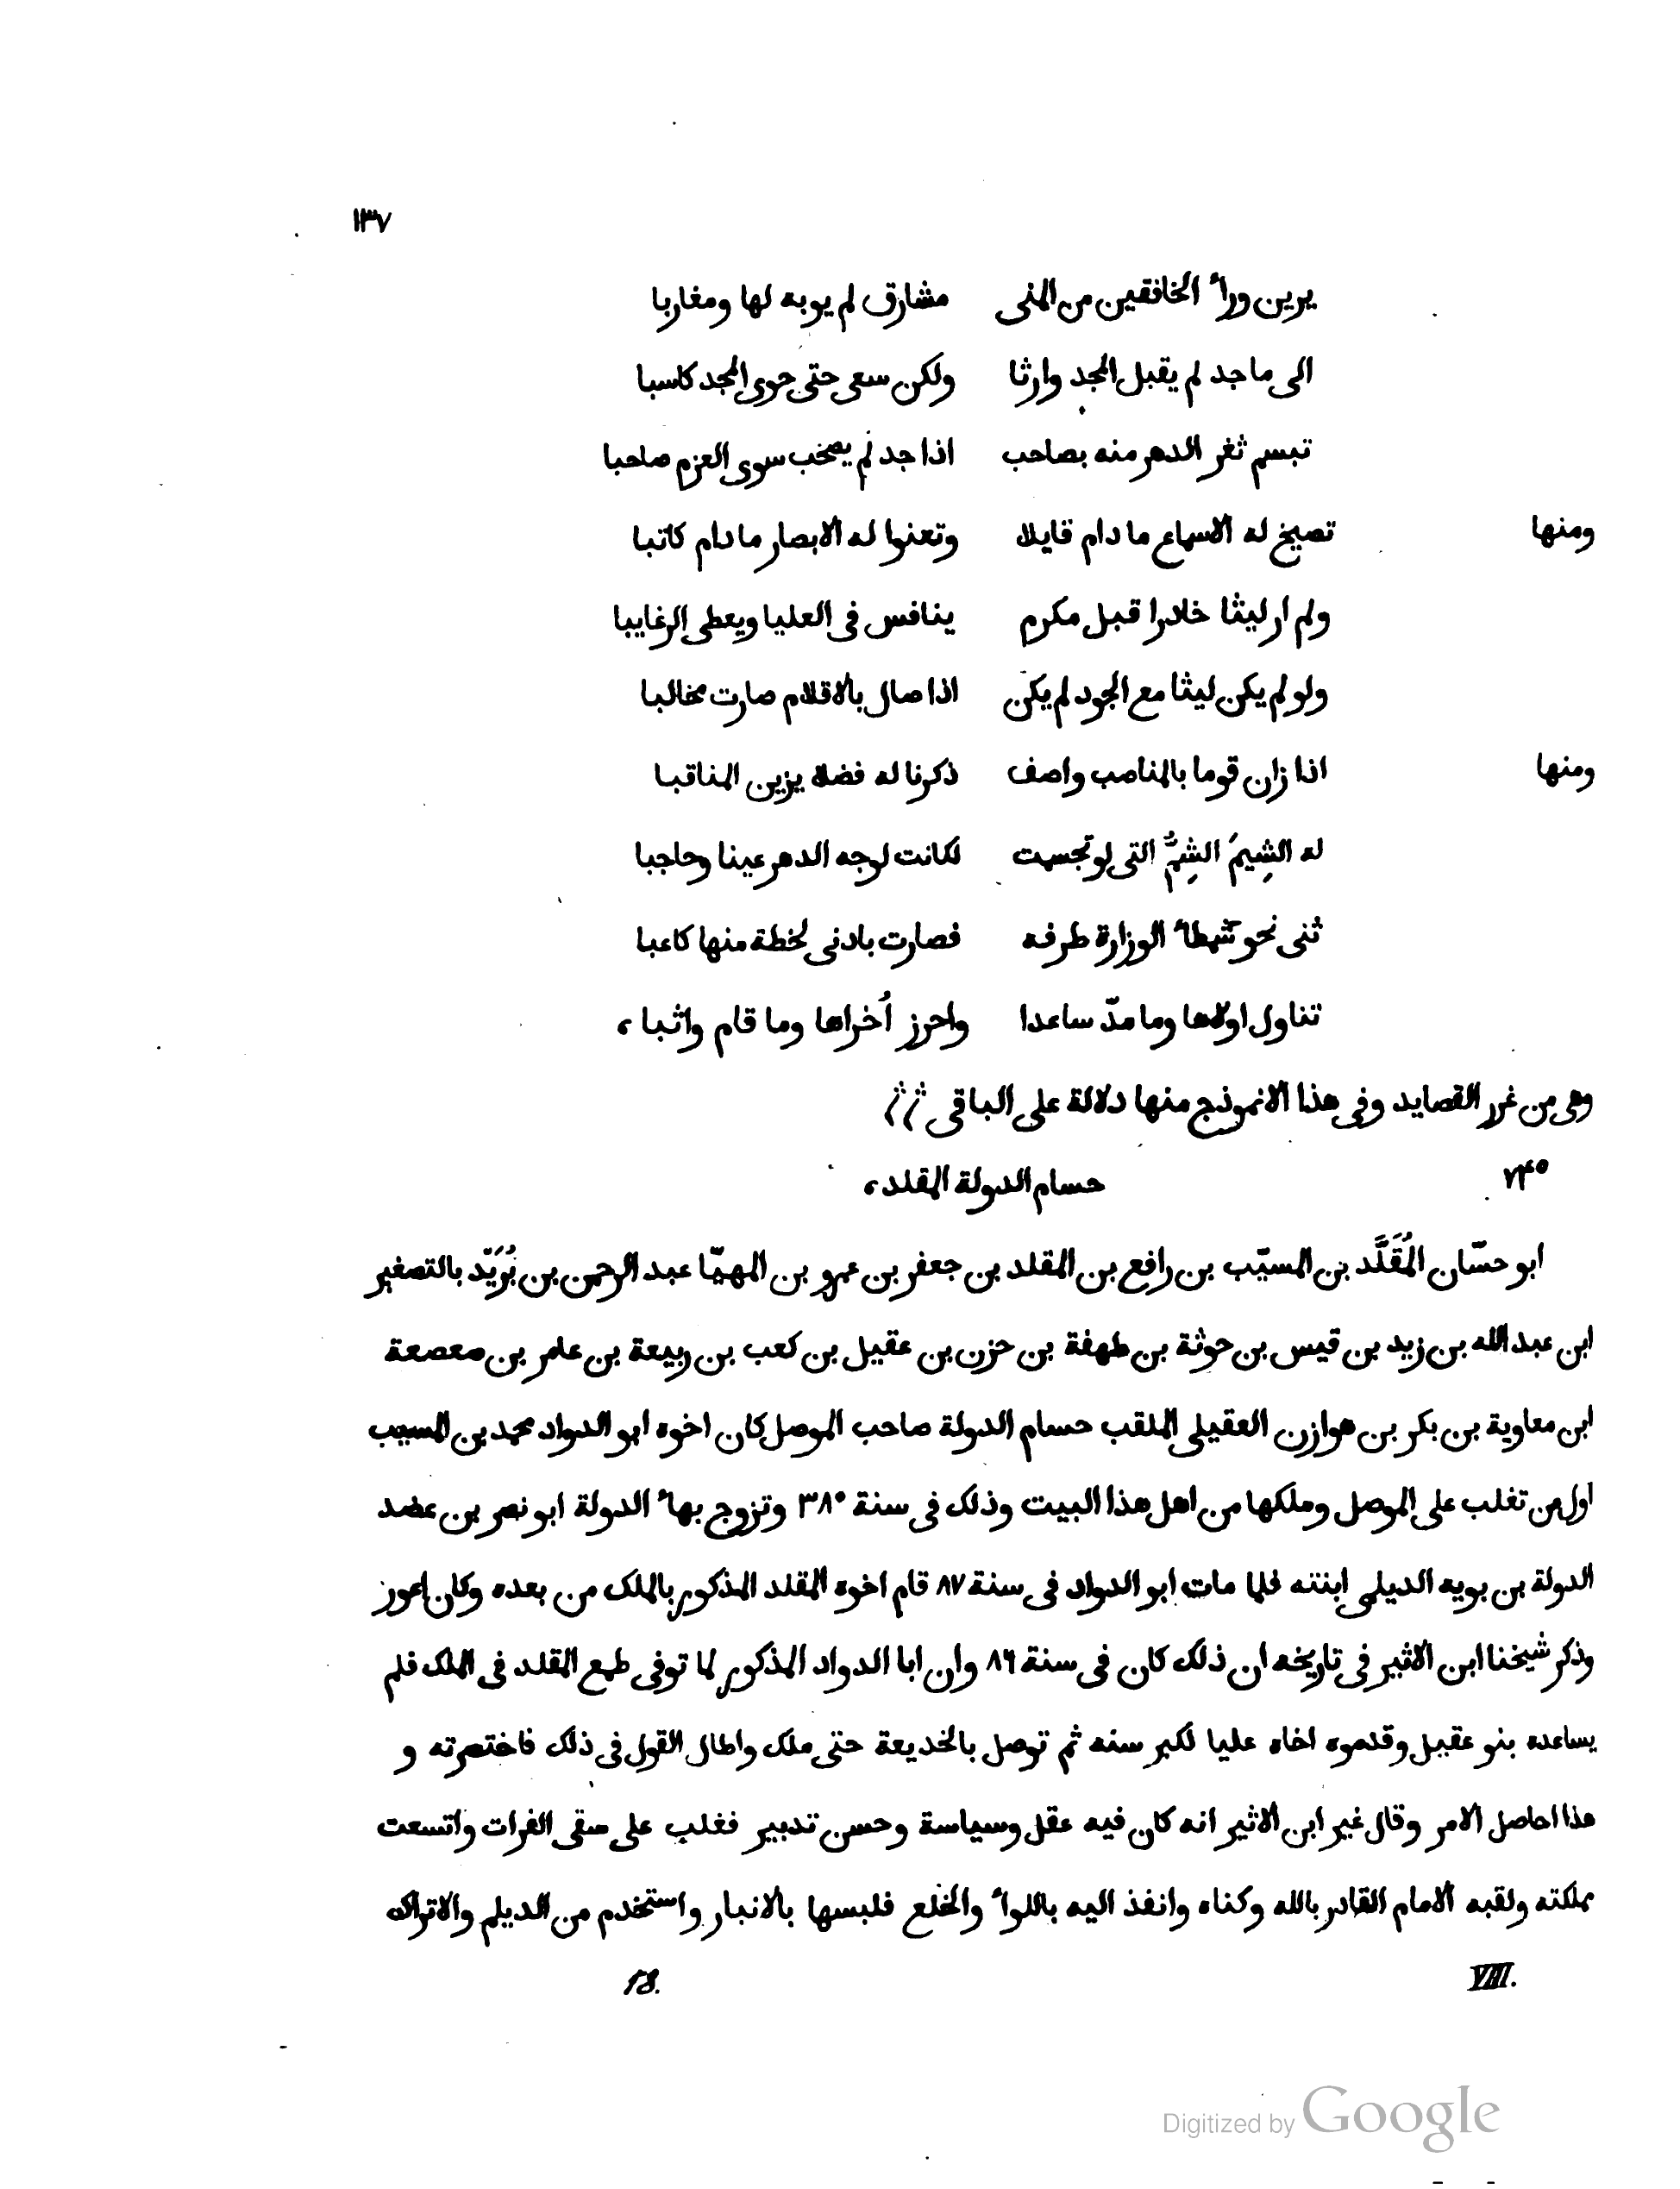 ١٣٧
يرين ورأ الخافقين من المنى مشارق لم يوبه لها ومغاربا
الى ماجد لم يقبل المجد وارثا ولكن سعى حتى حوى المجد كاسبا
تبسم ثغر الدهر منه بصاحب اذا جد لم يصحب سوى العزم صاحبا
ومنها تصيخ له الاسماع ما دام قايلا وتعنوا له الابصار ما دام كاتبا
ولم ار ليثا خادرا قبل مكرم ينافس فى العليا ويعطى الرغايبا
ولو لم يكن ليثا مع الجود لم يكن اذا صال بالاقلام صارت مخالبا
ومنها اذا زان قوما بالمناصب واصف ذكرنا له فضلا يزين المناقبا
له الشِيمَ الشِمُّ التى لو تجسمت لكانت لوجه الدهر عينا وحاجبا
ثنى نحو شمطأ الوزارة طرفه فصارت بادنى لخطة منها كاعبا
تناول اولاها وما مدّ ساعدا واحرز اُخراها وما قام واثبا ،
وهى من غرر القصايد وفى هذا الانموذج منها دلالة على الباقى
٧٤٥ حسام الدولة المقلد ،
ابو حسّان المُقَلَّد بن المسيّب بن رافع بن المقلد بن جعفر بن عمرو بن المهيّا عبد الرحمن بن بُرَيّد بالتصغير
ابن عبد الله بن زيد بن قيس بن حوثة بن طهفة بن حزن بن عقيل بن كعب بن ربيعة بن عامر بن صعصعة
ابن معاوية بن بكر بن هوازن العقيلى الملقب حسام الدولة صاحب الموصل كان اخوه ابو الدواد محمد بن المسيب
اول من تغلب على الموصل وملكها من اهل هذا البيت وذلك فى سنة ٣٨٠ وتزوج بهأ الدولة ابو نصر بن عضد
الدولة بن بويه الديلمى ابنته فلما مات ابو الدواد فى سنة ٨٧ قام اخوه المقلد المذكور بالملك من بعده وكان اعور
وذكر شيخنا ابن الاثير فى تاريخه ان ذلك كان فى سنة ٨٦ وان ابا الدواد المذكور لما توفى طمع المقلد فى الملك فلم
يساعده بنو عقيل وقدموه اخاه عليا لكبر سنه ثم توصل بالخديعة حتى ملك واطال القول فى ذلك فاختصرته و
هذا احاصل الامر وقال غير ابن الاثير انه كان فيه عقل وسياسة وحسن تدبير فغلب على سقى الفرات واتسعت
مملكته ولقبه الامام القادر بالله وكناه وانفذ اليه باللوأ والخلع فلبسها بالانبار واستخدم من الديلم والاتراك
VIII. 18.
Digitized by Google